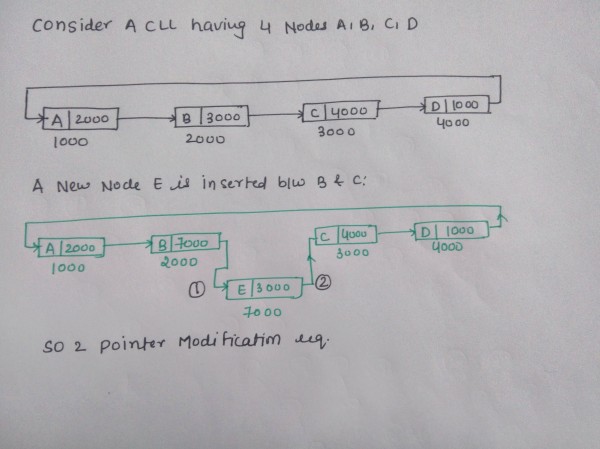 Consider A CLL having 4 Nodes A, B, C, D
A | 2000 B | 3000 C | 4000 D | 1000
1000 2000 3000 4000
A New Node E is inserted b/w B & C:
A | 2000 B | 7000 C | 4000 D | 1000
1000 2000 3000 4000
① E | 3000 ②
7000
SO 2 pointer Modification req.